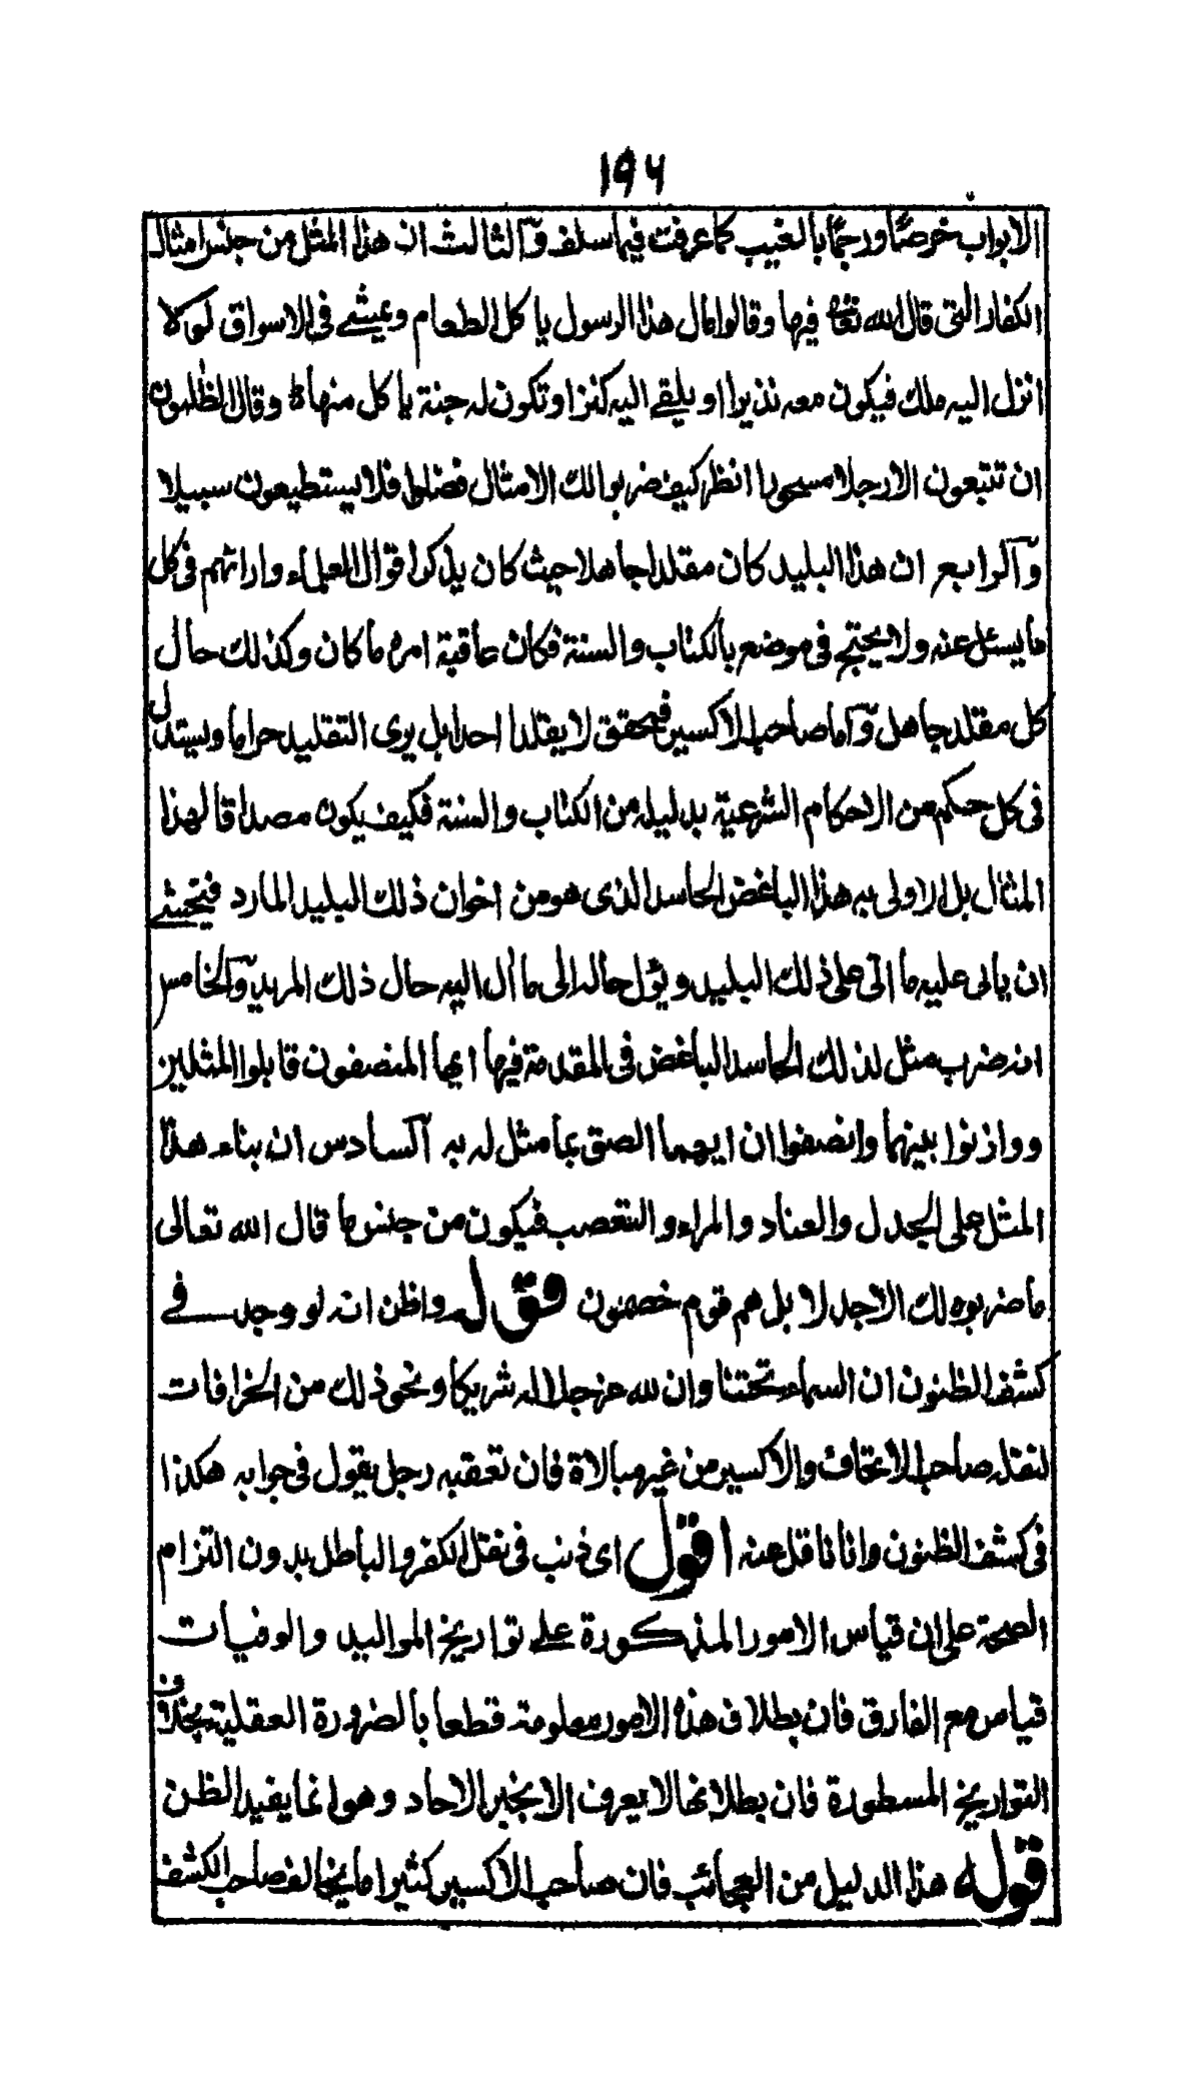 ١٩٦
الابواب خرصًا ورجمًا بالغيب كما عرفت فيما سلف وآلثالث ان هذا المثل من جنس امثال
الكفار التى قال الله تعالى فيها وقالوا مال هذا الرسول ياكل الطعام ويمشے فى الاسواق لولا
انزل اليه ملك فيكون معه نذيرا او يلقے اليه كنز او تكون له جنة ياكل منها ط وقال الظلمون
ان تتبعون الا رجلا مسحورا انظر كيف ضربوا لك الامثال فضلوا فلا يستطيعون سبيلا
وآلرابع ان هذا البليد كان مقلدا جاهلا حيث كان يذكر اقوال العلماء واراءهم فى كل
ما يسئل عنه ولا يحتج فى موضع بالكتاب والسنة فكان عاقبة امره ما كان وكذلك حال
كل مقلد جاهل وآما صاحب الاكسير فمحقق لا يقلد احدا بل يرى التقليد حراما ويستدل
فى كل حكم من الاحكام الشرعية بدليله من الكتاب والسنة فكيف يكون مصداقا لهذا
المثال بل الاولى به هذا الباغض الحاسد الذى هو من اخوان ذلك البليد المارد فيخشے
ان ياتى عليه ما اتى على ذلك البليد ويؤل حاله الى ما ال اليه حال ذلك المريد وآلخامس
انه ضرب مثل لذلك الحاسد الباغض فى المقدمة فيها ايها المنصفون قابلوا المثلين
ووازنوا بينهما وانصفوا ان ايهما الصق بما مثل له به آلسادس ان بناء هذا
المثل على الجدل والعناد والمراء والتعصب فيكون من جنس ما قال الله تعالى
ما ضربوه لك الا جدلا بل هم قوم خصمون قوله واظن انه لو وجد فے
كشف الظنون ان السماء تحتنا وان لله عز وجل شريكا ونحو ذلك من الخرافات
لنقله صاحب الاتحاف والاكسير من غير مبالاة فان تعقبه رجل يقول فى جوابه هكذا
فى كشف الظنون وانا ناقل عنه اقول اى ذنب فى نقل الكفر والباطل بدون التزام
الصحة على ان قياس الامور المذكورة علے تواريخ المواليد والوفيات
قياس مع الفارق فان بطلان هذه الامور معلومة قطعا بالضرورة العقلية بخلاف
التواريخ المسطورة فان بطلانها لا يعرف الا بخبر الاحاد وهو انما يفيد الظن
قوله هذا الدليل من العجائب فان صاحب الاكسير كثيرا ما يخالف صاحب الكشف